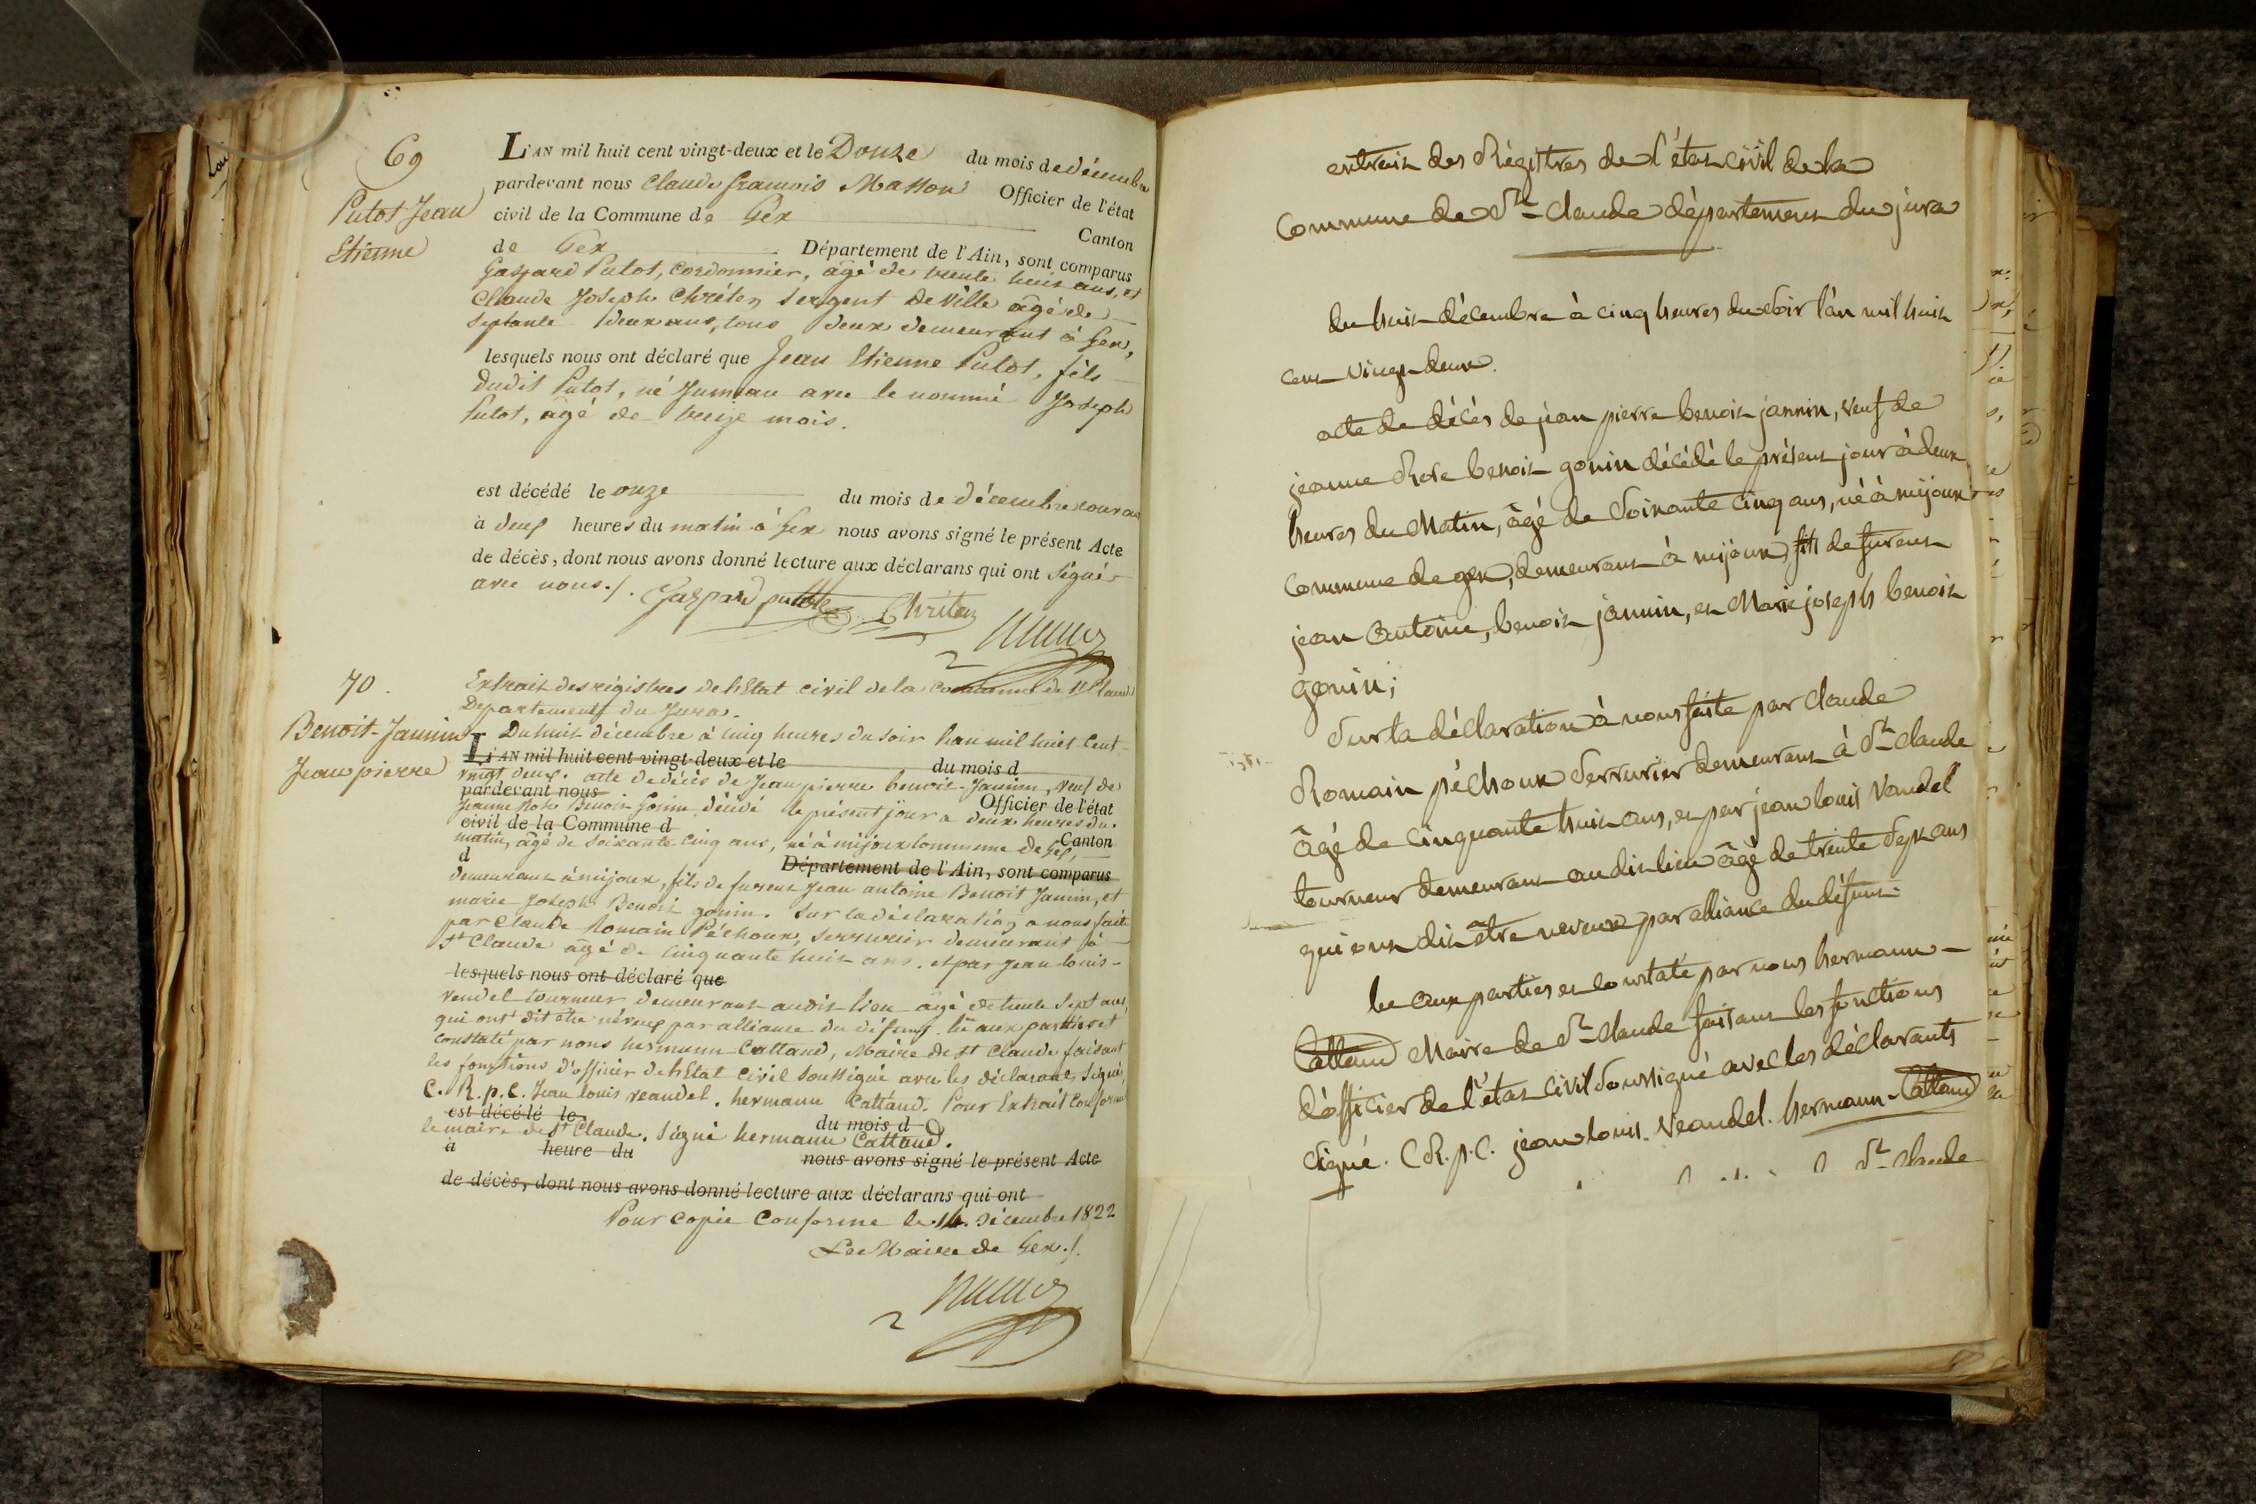 69
Putot Jean
Etienne
L'AN mil huit cent vingt-deux et le Douze du mois de décembre
pardevant nous Claude francois Masson Officier de l'état
civil de la Commune de Gex Canton
de Gex Département de l'Ain, sont comparus
Gaspard Putot, Cordonnier, âgé de trente huit ans, et
Claude Joseph Chréten Sergent de Ville âgé de
Septante deux ans, tous deux demeurant à Gex,
lesquels nous ont déclaré que Jean Etienne Putot, fils
dudit Putot, né Jumeau avec le nommé Joseph
Putot, âgé de treize mois.
est décédé le onze du mois de décembre courant
à deux heures du matin à Gex nous avons signé le présent Acte
de décès, dont nous avons donné lecture aux déclarans qui ont signé
avec nous./. Gaspard putot Chréten
70.
Benoit-Jannin
Jean pierre
Extrait des régistres de l'Etat civil de la Commune de St Claude
Département du Jura.
Du huit décembre à cinq heures du soir l'an mil huit Cent
L'AN mil huit cent vingt-deux et le du mois d
vingt deux. acte de décès de Jean pierre benoit-Jannin, veuf de
pardevant nous Officier de l'état
Jeanne Rose Benoit Gonin, décédé le présent jour a deux heures du
civil de la Commune d Canton
matin, âgé de soixante cinq ans, né à mijoux Commune de Gex,
d Département de l'Ain, sont comparus
demeurant à mijoux, fils de furent Jean antoine Benoit Jannin, et
marie Joseph Benoit gonin. Sur la déclaration a nous faite
par Claude Romain Péchoux, Serrurier demeurant à
St Claude âgé de cinquante huit ans. et par Jean louis
lesquels nous ont déclaré que
vendel tourneur demeurant audit lieu âgé de trente Sept ans
qui ont dit être neveux par alliance du défunt. lu aux parties et
constaté par nous hermann Cattand, Maire de St Claude faisant
les fonctions d'officier de l'Etat Civil Soussigné avec les déclarants Signé,
C. R. p. C. Jean louis veandel. hermann Cattand. Pour Extrait Conforme
est décédé le du mois d
le maire de St Claude. Signé hermann Cattand.
à heure du nous avons signé le présent Acte
de décès, dont nous avons donné lecture aux déclarans qui ont
Pour copie Conforme le 14. décembre 1822
Le Maire de Gex./.
extrait des Régistres de l'état civil de la
Commune de St-Claude département du jura
du huit décembre à cinq heures du soir l'an mil huit
cent vingt deux.
acte de décès de jean pierre benoit jannin, veuf de
jeanne Rose benoit gonin décédé le présent jour à deux
heures du Matin, âgé de soixante cinq ans, né à mijoux
commune de gex, demeurant à mijoux, fils de furent
jean antoine, benoit jannin, et Marie joseph benoit
gonin;
sur la déclaration à nous faite par claude
Romain péchoux serrurier demeurant à St claude
âgé de cinquante huit ans, et par jean louis Vandel
tourneur demeurant au dit lieu âgé de trente sept ans
qui ont dit être neveux par alliance du défunt
lu aux parties et constaté par nous hermann
Cattand Maire de St-claude faisant les fonctions
d'officier de l'état civil soussigné avec les déclarants
signé. C R. p. C. jean louis Veandel. hermann-Cattand
St-claude